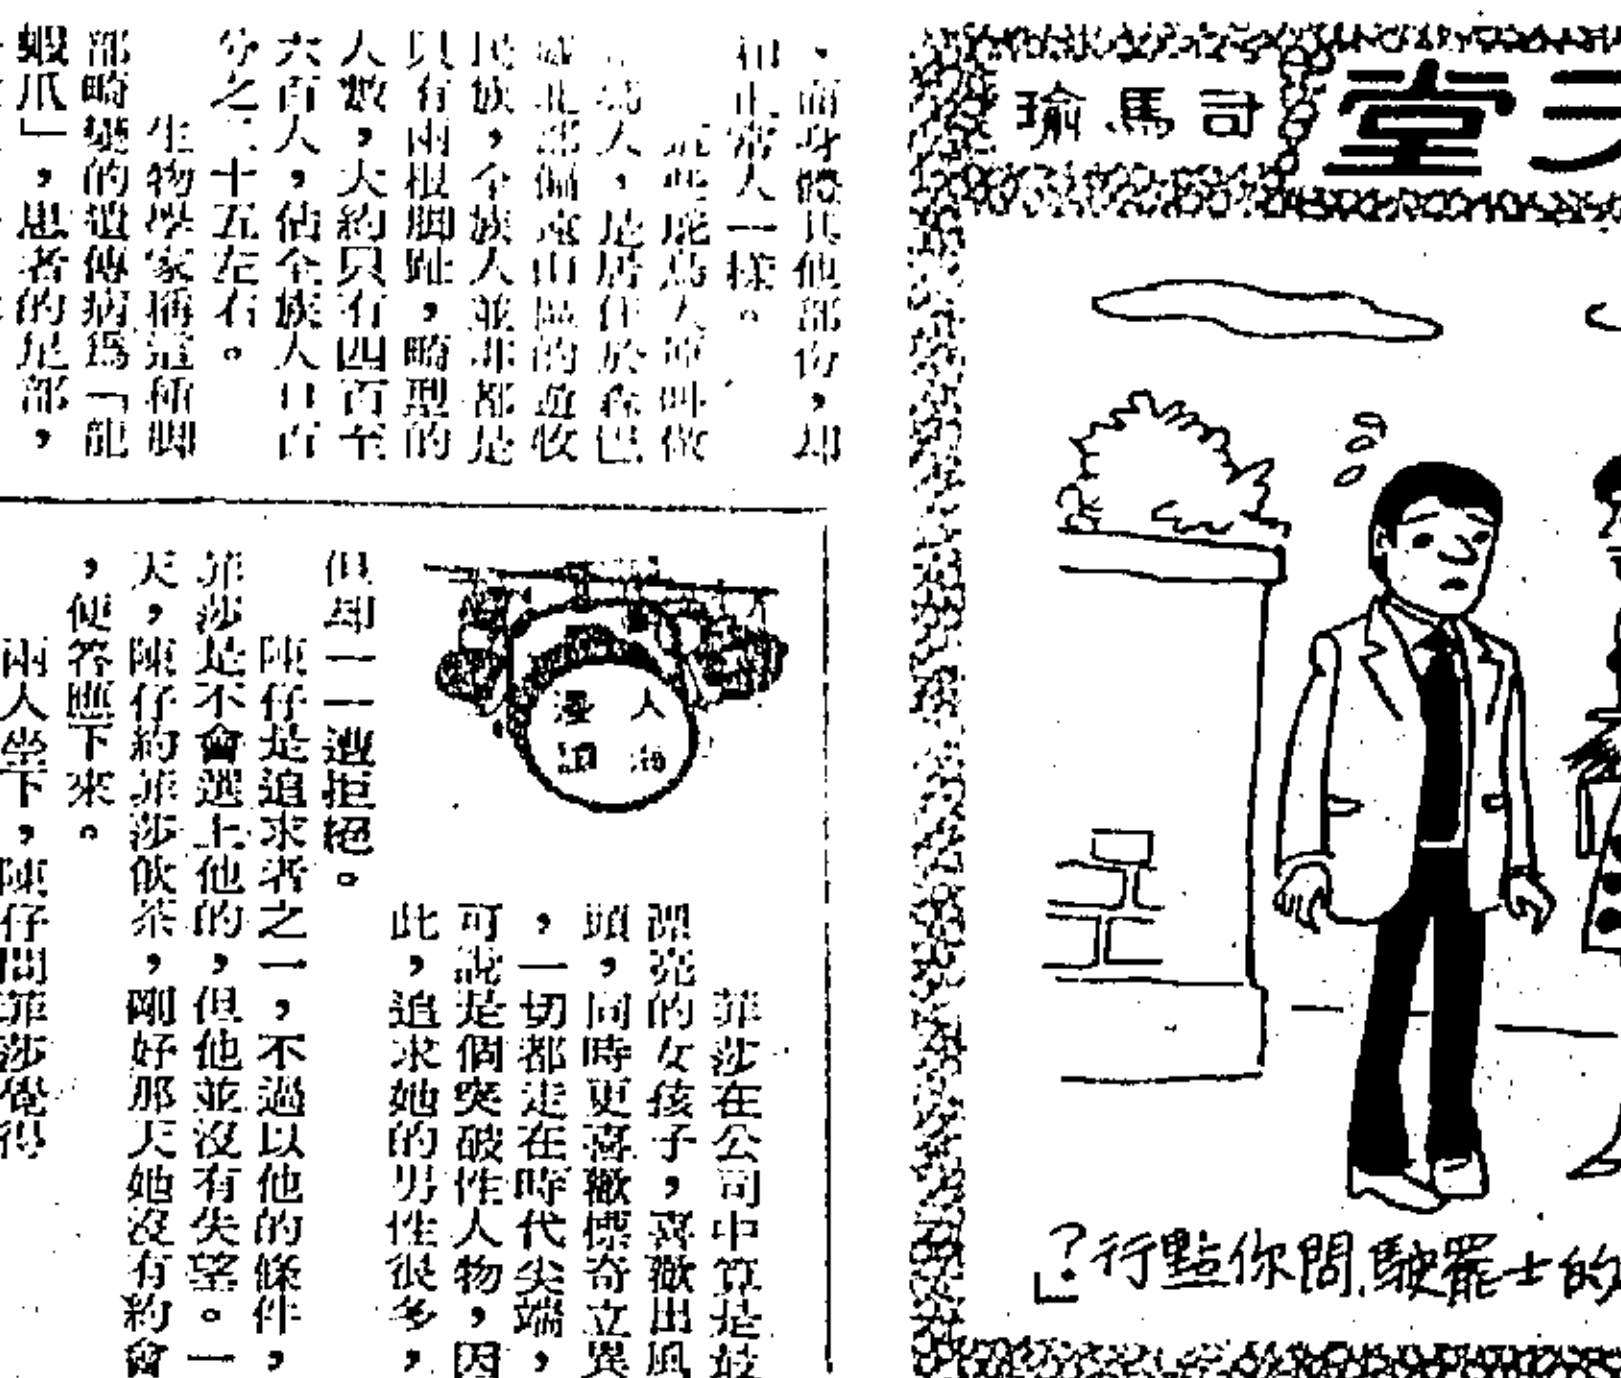 堂
司馬瑜
的士罷駛,問你點行?」
,而身體其他部份,却
和正常人一樣。
這些鴕鳥人
鳥人,是居住於
北部偏遠山區的遊牧
民族,全族人並非都是
只有兩根脚趾,畸型的
人數,大約只有四百至
六百人,佔全族人口百
分之二十五左右。
生物學家稱這種脚
部畸變的遺傳病爲「龍
蝦爪」,患者的足部,
人物
漫
菲莎在公司中算是最
漂亮的女孩子,喜歡出風
頭,同時更喜歡標奇立異
,一切都走在時代尖端,
可說是個突破性人物,因
此,追求她的男性很多,
但却一一遭拒絕。
陳仔是追求者之一,不過以他的條件,
菲莎是不會選上他的,但他並沒有失望。一
天,陳仔約菲莎飲茶,剛好那天她沒有約會
,便答應下來。
兩人坐下,陳仔問菲莎覺得